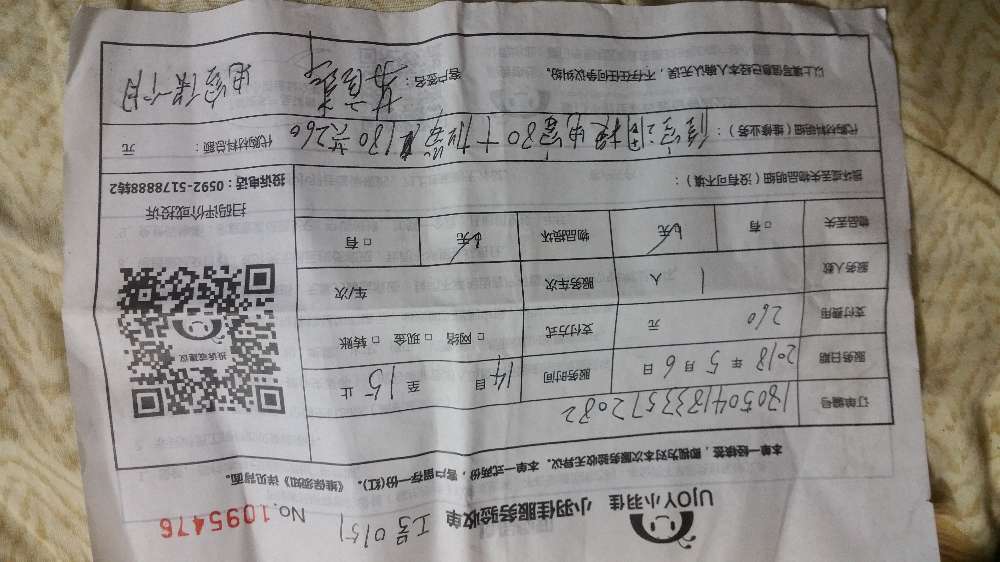 UJOY小羽佳
小羽佳服务验收单
工号0151
No.1095476
本单一经续签，即视为对本次服务验收无异议。本单一式两份，客户留存一份(红)。《维保须知》详见背面。
订单编号
服务日期 2018 年 5 月 6 日 服务时间 14 自 至 15 止
支付费用 260 元 支付方式 □ 网络 □ 现金 □ 转账
服务人数 1 人 服务车次 车/次
物品丢失 □ 有 无 物品损坏 无 □ 有
投诉或建议
扫码评价或投诉
投诉电话：0592-5178888转2
损坏或丢失物品明细（没有可不填）：
代购材料明细（维修业务）：
代购材料总额： 元
以上填写信息已经本人确认无误，不存在任何争议纠纷。
客户签名：